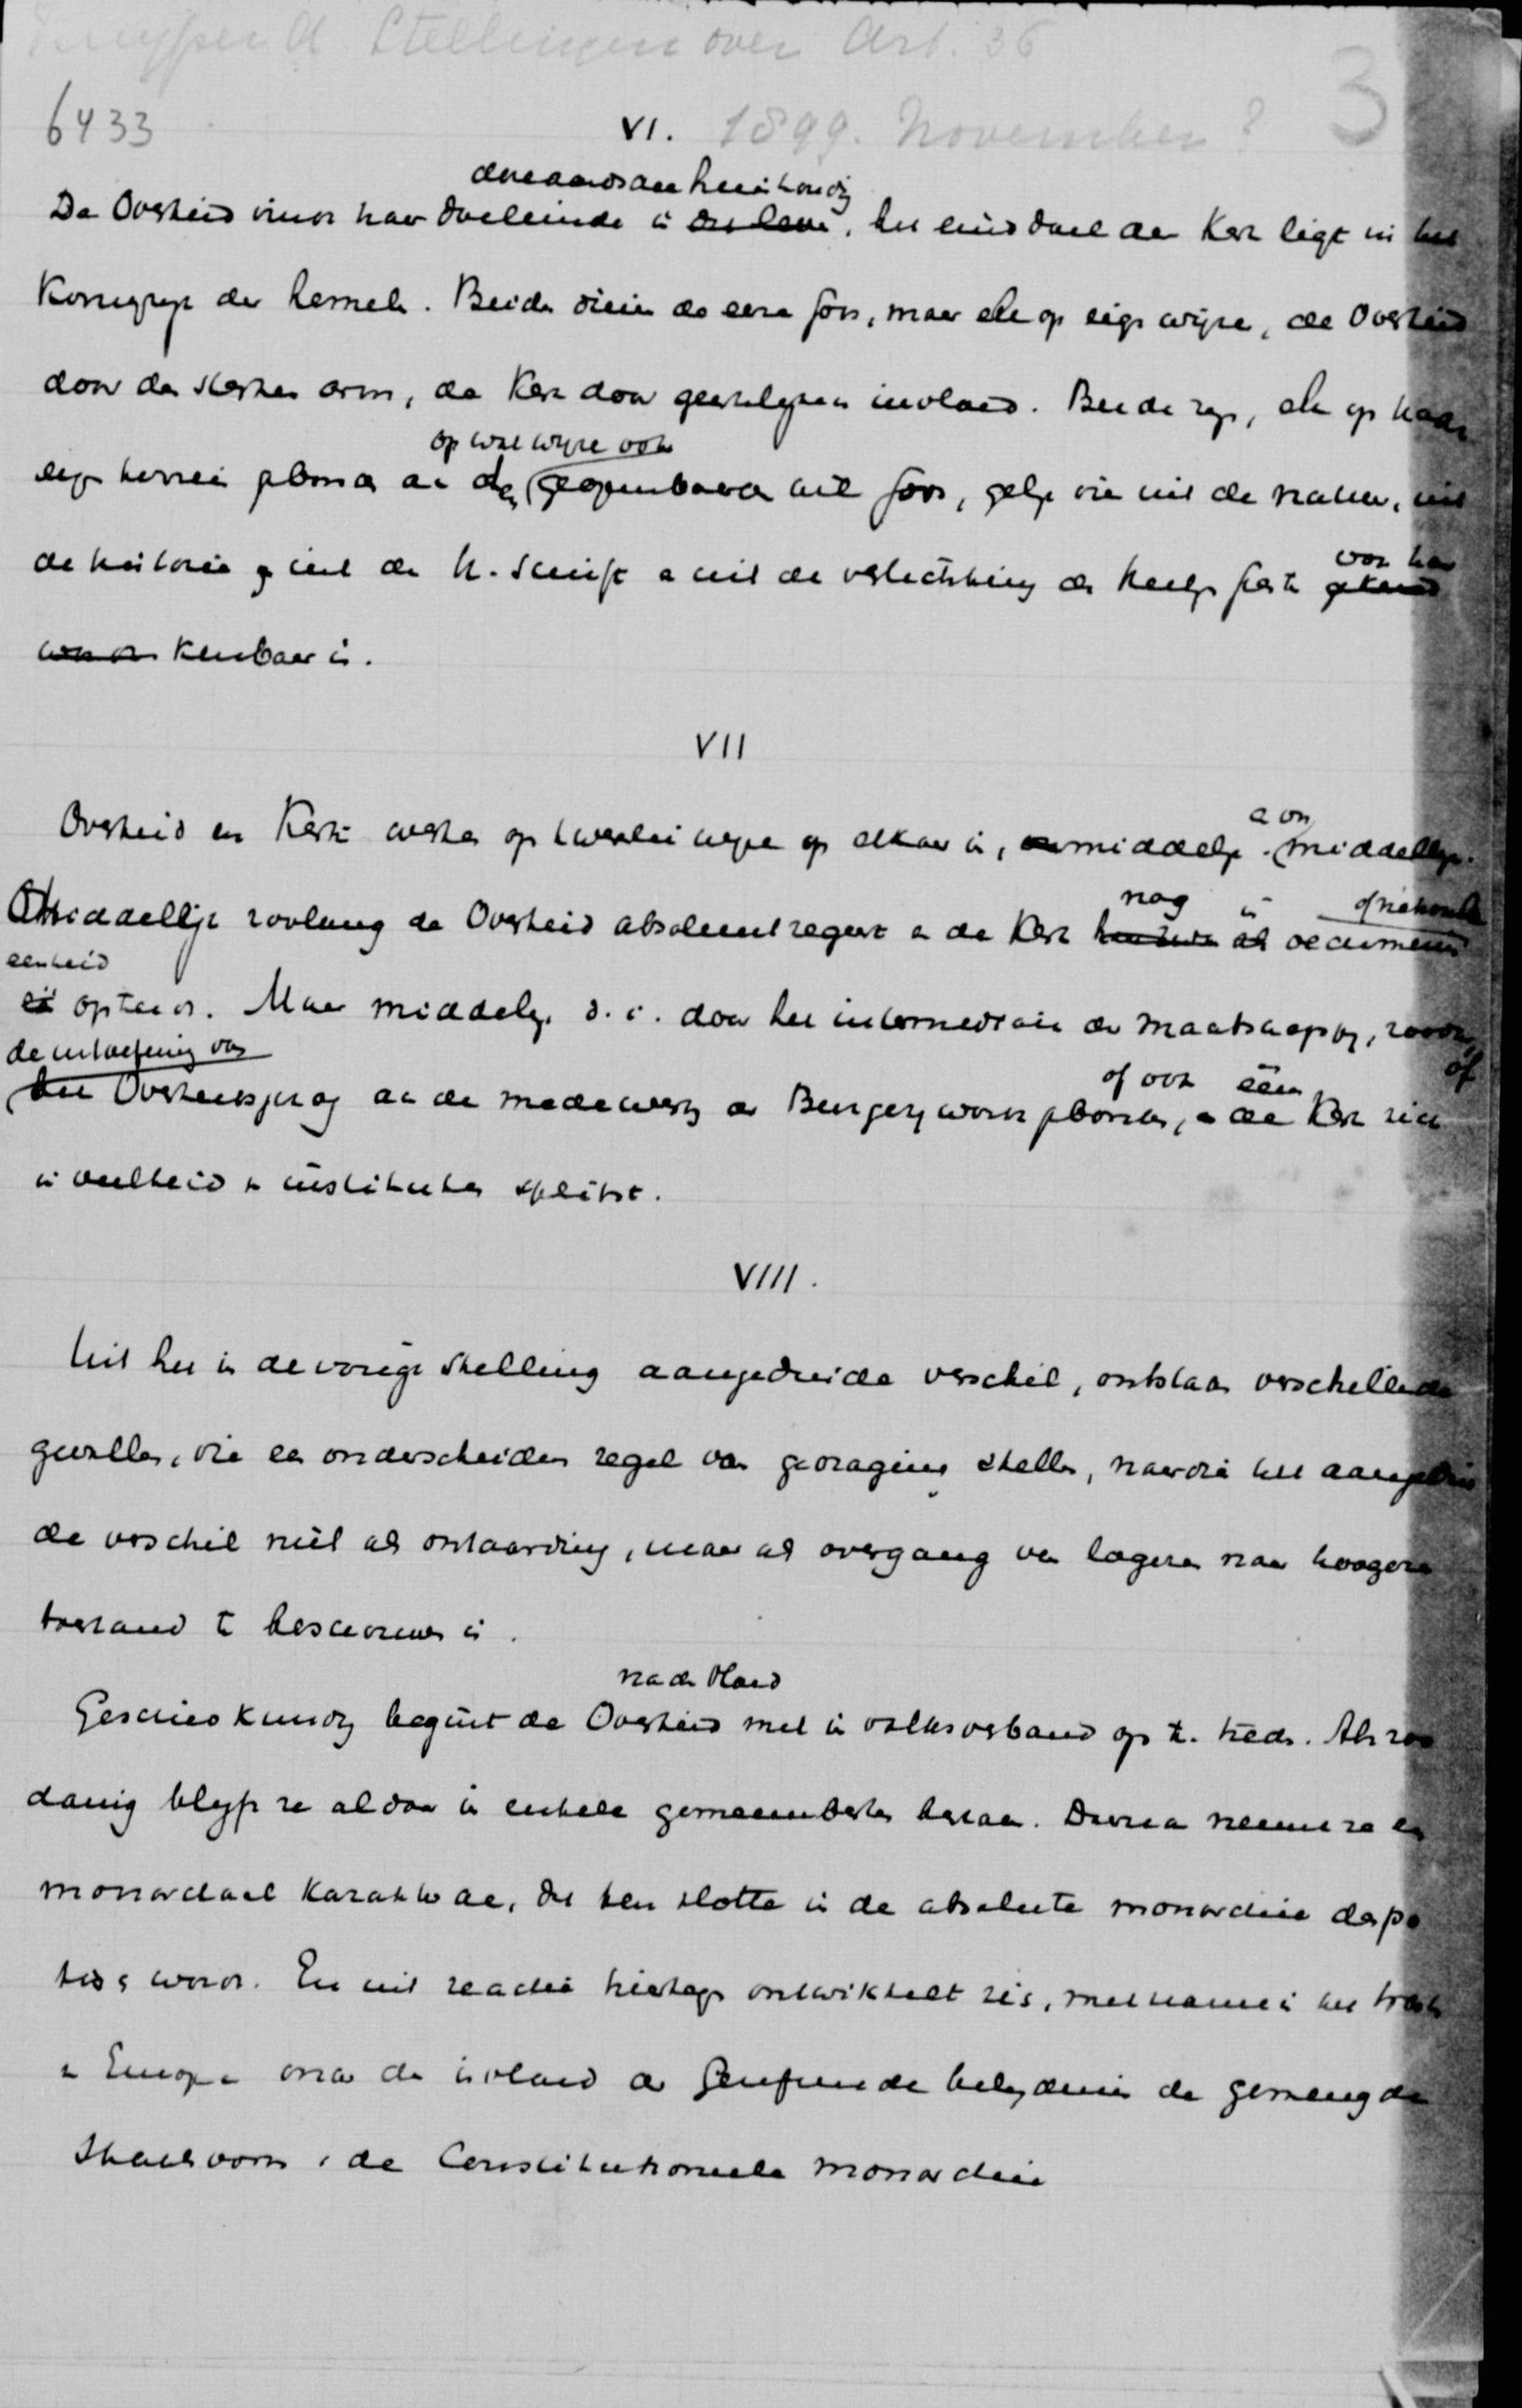 Kuyper A. Stellingen over Art. 36
6433
VI. 1899. November? 3
De Overheid vindt haar doeleinde in dit leven, het einddoel der Kerk ligt in het
Koningrijk der hemelen. Beide dienen de eere Gods, maar elk op eigen wijze, de Overheid
door den sterken arm, de Kerk door geestelijken invloed. Beide zijn, elk op haar
op wat wijze ook
eigen terrein gebonden aan den geopenbaarden wil Gods, gelijk die uit de natuur, uit
van haar
de historie en uit de H. Schrift en uit de verlichting des Heiligen Geestes gekend
worden kenbaar is.
VII
en on
Overheid en Kerk werken op tweeërlei wijze op elkaar in, onmiddelijk middellijk.
nog in
Onmiddellijk zoolang de Overheid absoluut regeert en de Kerk als oecumenische
eenheid
optreedt. Maar middelijk, d.i. door het intermediair der maatschappij, zoodra
de uitoefening van of
of ook één
het Overheidsgezag aan de medewerking der Burgerij wordt gebonden, en de Kerk zich
in veelheid van instituten splitst.
VIII.
Uit het in de vorige Stelling aangeduide verschil, ontstaan verschillende
gevallen, die een onderscheiden regel van gedraging stellen, naardien het aangedui
de verschil niet als ontaarding, maar als overgang van lageren naar hoogeren
toestand te beschouwen is.
na den vloed
Geschiedkundig begint de Overheid met in volksverband op te treden. Als zoo
danig blijft ze aldaar in enkele gemeenebesten bestaan. Daarna neemt ze een
monarchaal karakter aan, dat ten slotte in de absolute monarchie despo
tisch wordt. En uit reactie hiertegen ontwikkelt zich, met name in het Westen
van Europa onder de invloed der Gereformeerde belijdenis de gemengde
Staatsvorm, de Constitutioneele Monarchie